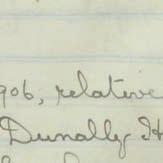 906, relative
Dunally H